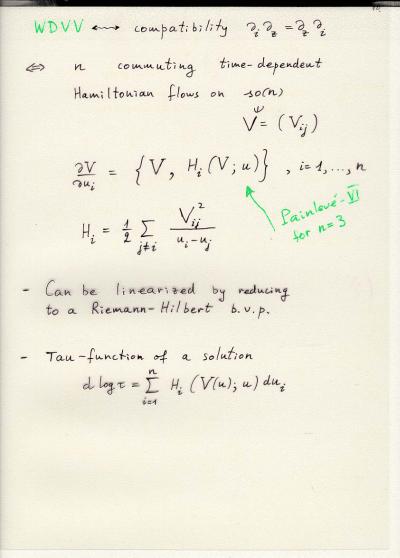 WDVV ↔ compatibility ∂i ∂z = ∂z ∂i
⇔ n commuting time-dependent
Hamiltonian flows on so(n)
∋
V = (Vij)
∂V/∂ui = {V, Hi(V; u)}, i=1,..., n
Painlevé-VI
for n=3
Hi = 1/2 ∑j≠i Vij²/(ui - uj)
- Can be linearized by reducing
to a Riemann-Hilbert b.v.p.
- Tau-function of a solution
d log τ = ∑i=1n Hi (V(u); u) dui